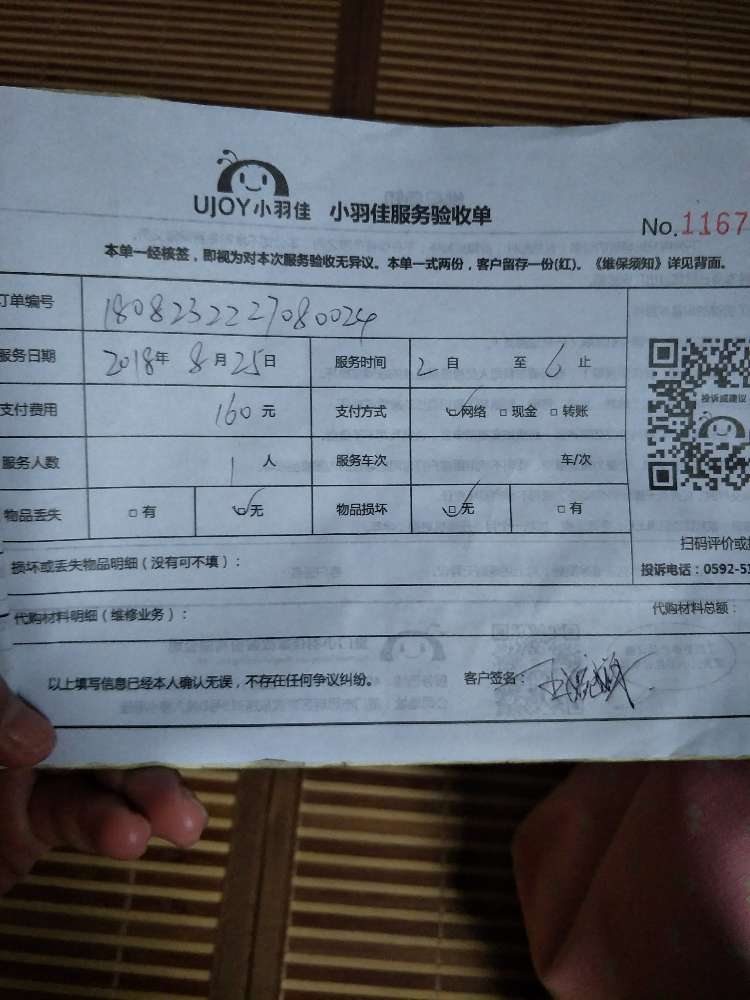 UJOY小羽佳 小羽佳服务验收单
No.1167
本单一经核签，即视为对本次服务验收无异议。本单一式两份，客户留存一份(红)。《维保须知》详见背面。
订单编号 1808232227080024
服务日期 2018年 8月25日 服务时间 2自 至 6止
支付费用 160元 支付方式 网络 现金 转账
投诉或建议
服务人数 1人 服务车次 车/次
物品丢失 有 无 物品损坏 无 有
扫码评价或
损坏或丢失物品明细（没有可不填）：
投诉电话：0592-51
代购材料明细（维修业务）： 代购材料总额：
以上填写信息已经本人确认无误，不存在任何争议纠纷。 客户签名：